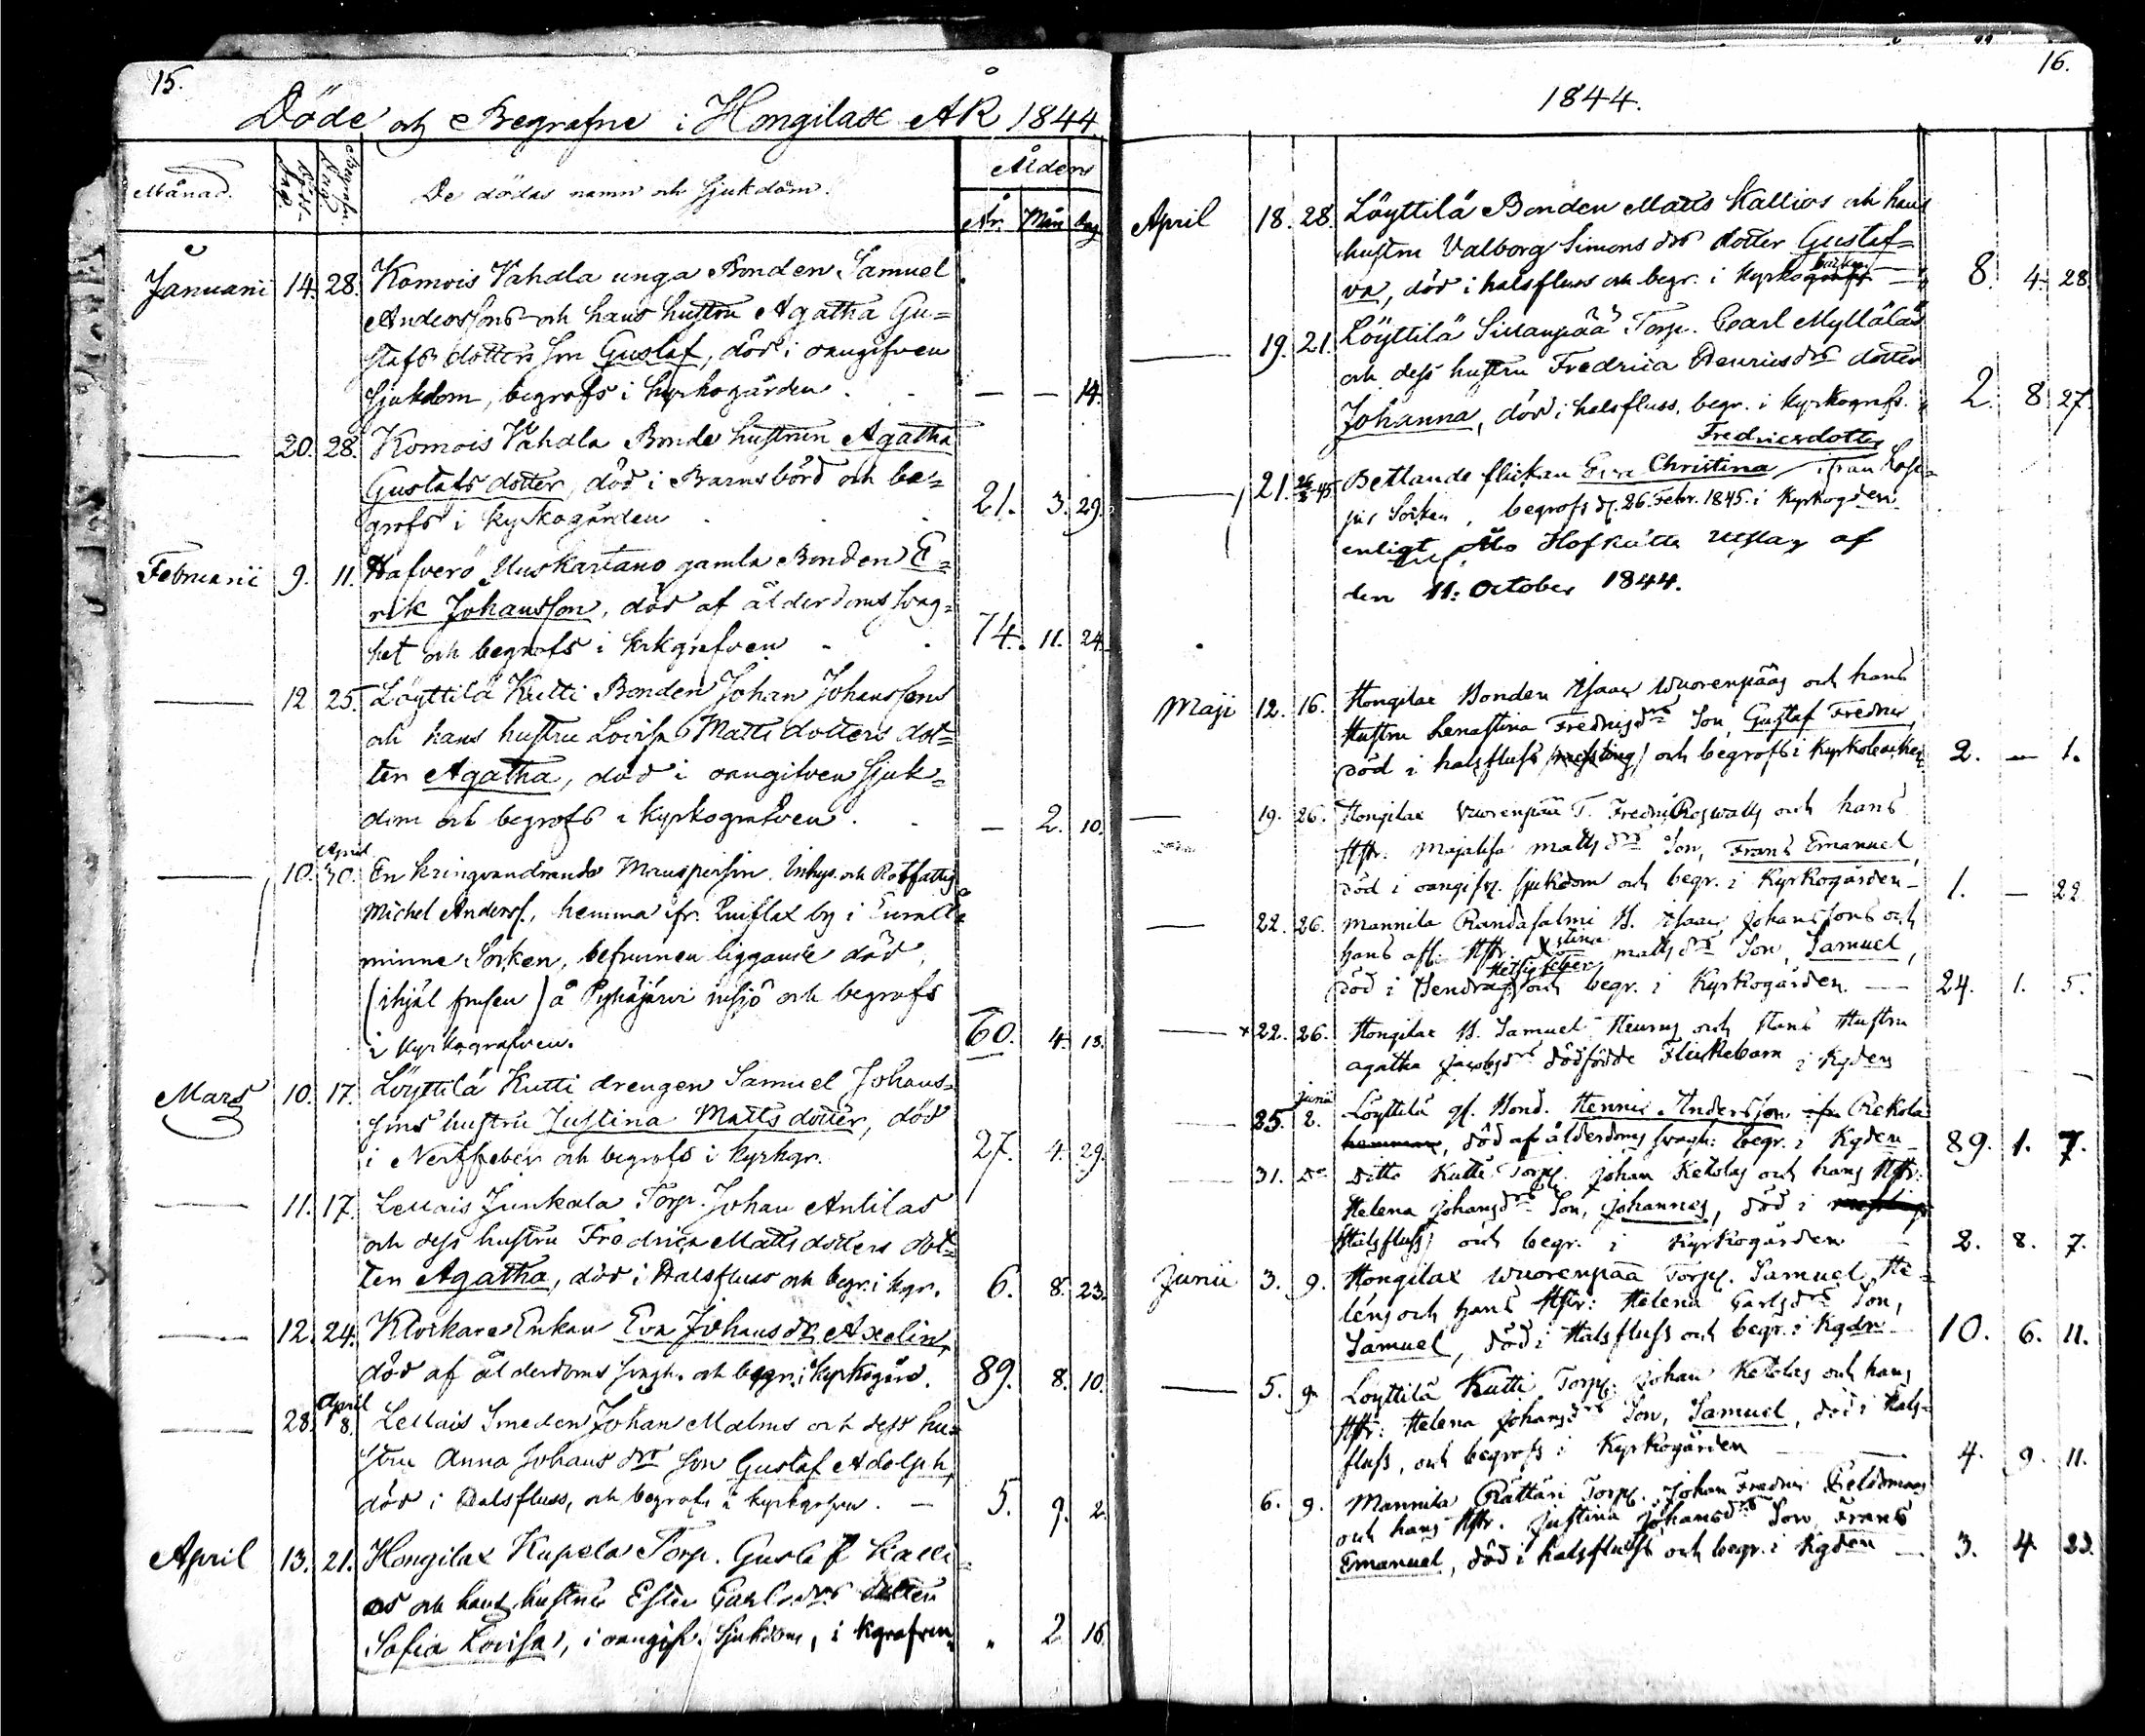 15.
Döde och Begrafne i Hongilax ÅR 1844
Månad.
De dödas namn och sjukdom.
Ålder
År. Mån dag
Januari 14. 28. Komois Vahala unga Bonden Samuel
Anderssons och hans hustru Agatha Gu=
stafs dotters son Gustaf, död i oangifven
sjukdom, begrofs i kyrkogården . . — — 14.
— 20. 28. Komois Vahala Bonde hustrun Agatha
Gustafs dotter, död i Barnsbörd och be=
grofs i kyrkogården . . 21. 3. 29.
Februarii 9. 11. Hafverö Uuskartano gamla Bonden E=
rik Johansson, död af ålderdoms svag=
het och begrofs i kyrkgrafven . . 74. 11. 24.
— 12 25. Löyttilä Kutti Bonden Johan Johanssons
och hans hustru Lovisa Matts dotters dot=
ter Agatha, död i oangifven sjuk=
dom och begrofs i kyrkografven . . — 2. 10.
April
— 10. 30. En kringvandrande Mansperson. Inhys. och Rotfattig
Michel Anderss., hemma ifr. by i Eura
minne Socken, befunnen liggande död,
(ihjäl frusen) å Pyhäjärvi insjö och begrofs
i kyrkografven. 60. 4. 13.
Mars 10. 17. Löyttilä Kutti drengen Samuel Johans=
sons hustru Justina Matts dotter, död
i Nerffeber och begrofs i kyrkgr. 27. 4. 29.
— 11. 17. Lellais Junkala Torp. Johan Antilas
och dess hustru Fredrica Matts dotters dot=
ter Agatha, död i Halsfluss och begr. i kgr. 6. 8. 23.
— 12. 24. Klockare Enkan Eva Johans dr Axelin,
död af ålderdoms svagh. och begr. i kyrkogård. 89. 8. 10.
April
— 28. 8. Lellais Smeden Johan Malms och dess hu=
stru Anna Johans drs son Gustaf Adolph,
död i Halsfluss, och begrofs i kyrkgrfven. — 5. 9. 2.
April 13. 21. Hongilax Kupela Torp. Gustaf Kalli=
os och hans hustrus Ester Carlsdrs dotter
Sofia Lovisa, i oangifv. sjukdom, i kgrafven " 2 16.
16.
1844.
April 18. 28. Löyttilä Bonden Matts Kallios och hans
hustru Valborg Simons drs dotter Gustaf=
va, död i halsfluss och begr. i kyrkog — 8. 4. 28.
— 19. 21. Löyttilä Sillanpää Torp. Carl Mylläläs
och dess hustru Fredrica Henricsdrs dotter
Johanna, död i halsfluss, begr. i kyrkografv. 2. 8. 27.
Fredricsdotter
— 21. 26/2-45 Betlande flickan Eva Christina ifrån
Socken, begrofs d. 26. Febr. 1845. i kyrkogden
enligt Åbo Hofrätts Utslag af
den 11: October 1844.
Maji 12. 16. Hongilax Bonden Isaac Wuorenpääs och hans
Hustru Lenastina Fredrigsdrs Son, Gustaf Fredric,
död i halsfluss och begrofs i Kyrkobacken 2. — 1.
— 19. 26. Hongilax Vuorenpää T. Fredric Roswalls och hans
Hstr. Majalisa mattsdrs Son, Frans Emanuel,
död i oangifv. sjukdom och begr. i Kyrkogården — 1. — 22.
— 22. 26. Mannila Randasalmi B. Isaac Johanssons och
hans afl. Hstr. stina mattsdrs Son, Samuel,
Hetsig feber
död i och begr. i Kyrkogården. — 24. 1. 5.
— x 22. 26. Hongilax B. Samuel Heurus och Hans Hustru
agatha Jacobsdrs dödfödde Flickebarn i Kgden
junii
25. 2. Löyttilä gl. Bond. Henric Andersson Rekola
, död af ålderdoms svagh: begr. i Kgden — 89. 1. 7.
— 31. Do Ditto Kutti Torp. Johan Ketolas och hans Hstr:
Helena johansdrs Son, Johannes, död i
Halsfluss och begr. i Kyrkogården — 2. 8. 7.
Junii 3. 9. Hongilax Wuorenpää Torp. Samuel He=
léns och hans Hstr: Helena Carlsdrs Son,
Samuel, död i Halsfluss och begr. i Kgdn — 10. 6. 11.
— 5. 9. Löyttilä Kutti Torp. Johan Ketolas och hans
Hstr: Helena Johansdrs Son, Samuel, död i Hals=
fluss, och begrofs i Kyrkogården — 4. 9. 11.
6. 9. Mannila Rättäri Torp. Johan Fredric Feldtmans
och hans Hstr. Justina Johansdrs Son Frans
Emanuel, död i halsfluss och begr. i Kgden — 3. 4. 23.